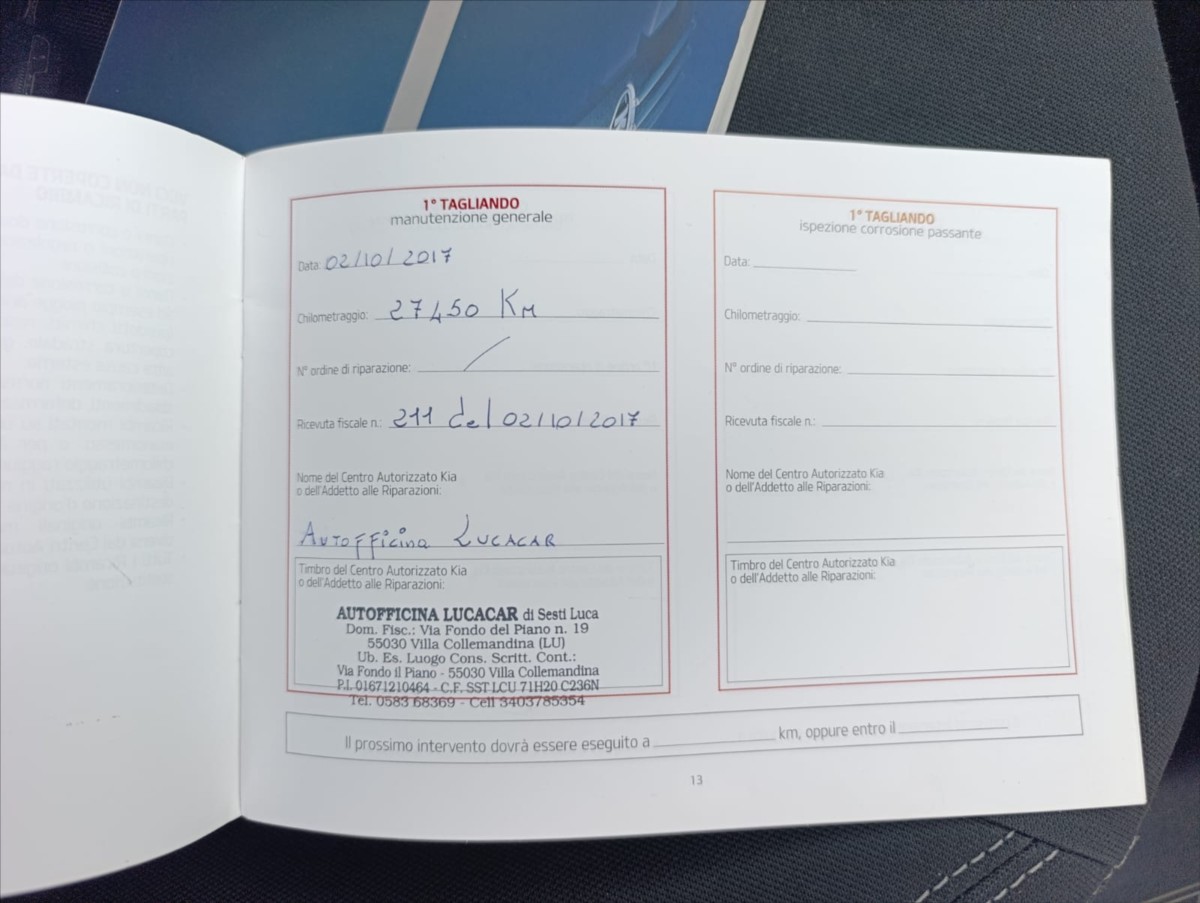 1° TAGLIANDO
manutenzione generale
Data: 02/10/2017
Chilometraggio: 27450 KM
N° ordine di riparazione: /
Ricevuta fiscale n.: 211 del 02/10/2017
Nome del Centro Autorizzato Kia
o dell'Addetto alle Riparazioni:
AUTOFFicina LUCACAR
Timbro del Centro Autorizzato Kia
o dell'Addetto alle Riparazioni:
AUTOFFICINA LUCACAR di Sesti Luca
Dom. Fisc.: Via Fondo del Piano n. 19
55030 Villa Collemandina (LU)
Ub. Es. Luogo Cons. Scritt. Cont.:
Via Fondo il Piano - 55030 Villa Collemandina
P.I. 01671210464 - C.F. SST LCU 71H20 C236N
Tel. 0583 68369 - Cell 3403785354
1° TAGLIANDO
ispezione corrosione passante
Data:
Chilometraggio:
N° ordine di riparazione:
Ricevuta fiscale n.:
Nome del Centro Autorizzato Kia
o dell'Addetto alle Riparazioni:
Timbro del Centro Autorizzato Kia
o dell'Addetto alle Riparazioni:
Il prossimo intervento dovrà essere eseguito a km, oppure entro il
13